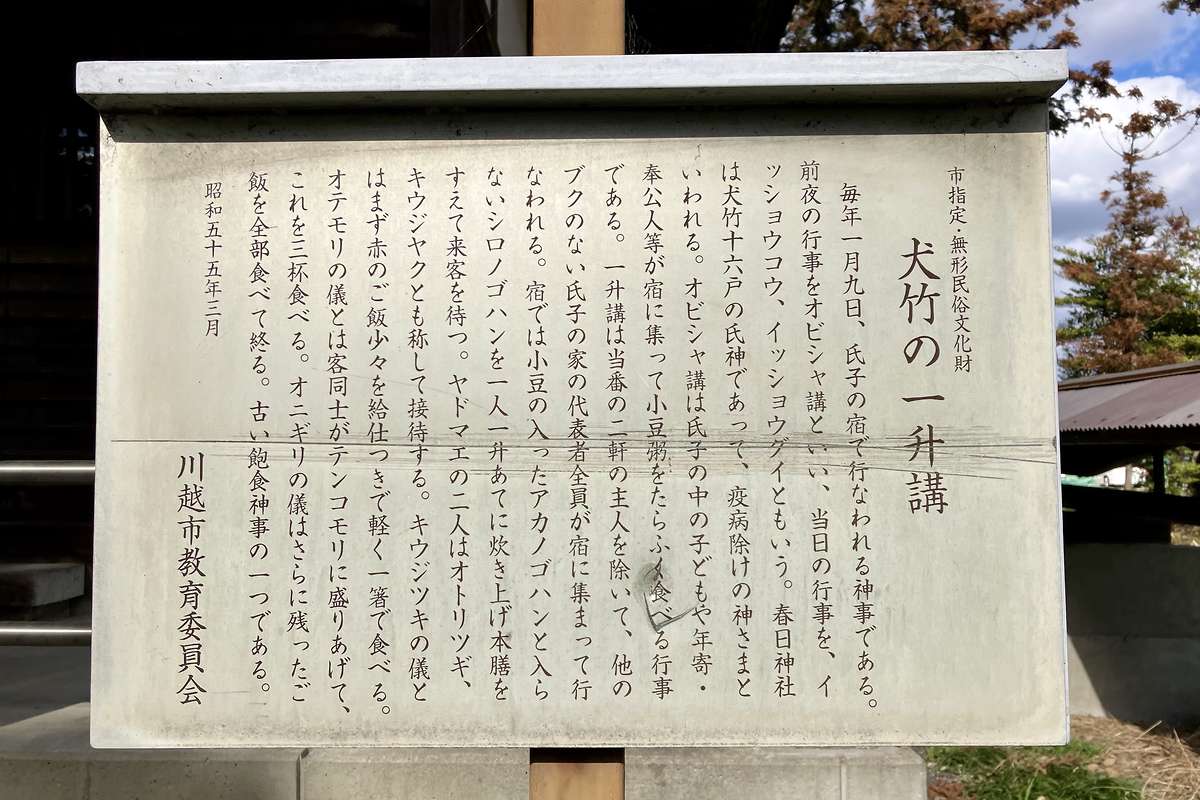 市指定・無形民俗文化財
犬竹の一升講
毎年一月九日、氏子の宿で行なわれる神事である。
前夜の行事をオビシャ講といい、当日の行事を、イ
ッショウコウ、イッショウグイともいう。春日神社
は犬竹十六戸の氏神であって、疫病除けの神さまと
いわれる。オビシャ講は氏子の中の子どもや年寄・
奉公人等が宿に集って小豆粥をたらふく食べる行事
である。一升講は当番の二軒の主人を除いて、他の
ブクのない氏子の家の代表者全員が宿に集まって行
なわれる。宿では小豆の入ったアカノゴハンと入ら
ないシロノゴハンを一人一升あてに炊き上げ本膳を
すえて来客を待つ。ヤドマエの二人はオトリツギ、
キウジヤクとも称して接待する。キウジツキの儀と
はまず赤のご飯少々を給仕つきで軽く一箸で食べる。
オテモリの儀とは客同士がテンコモリに盛りあげて、
これを三杯食べる。オニギリの儀はさらに残ったご
飯を全部食べて終る。古い飽食神事の一つである。
昭和五十五年三月
川越市教育委員会